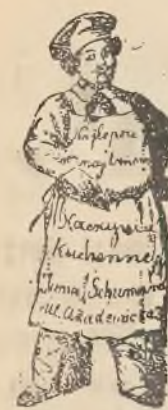 Najlepsze
i najtańsze
Naczynia
Kuchenne
Schumann
ul. Akademicka